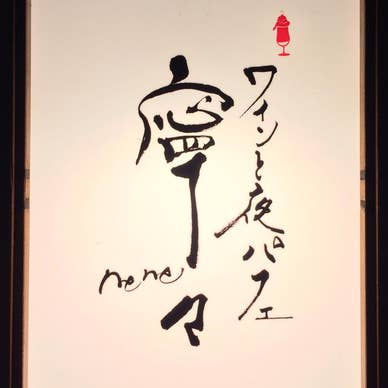 ワインと夜パフェ
寧々
nene